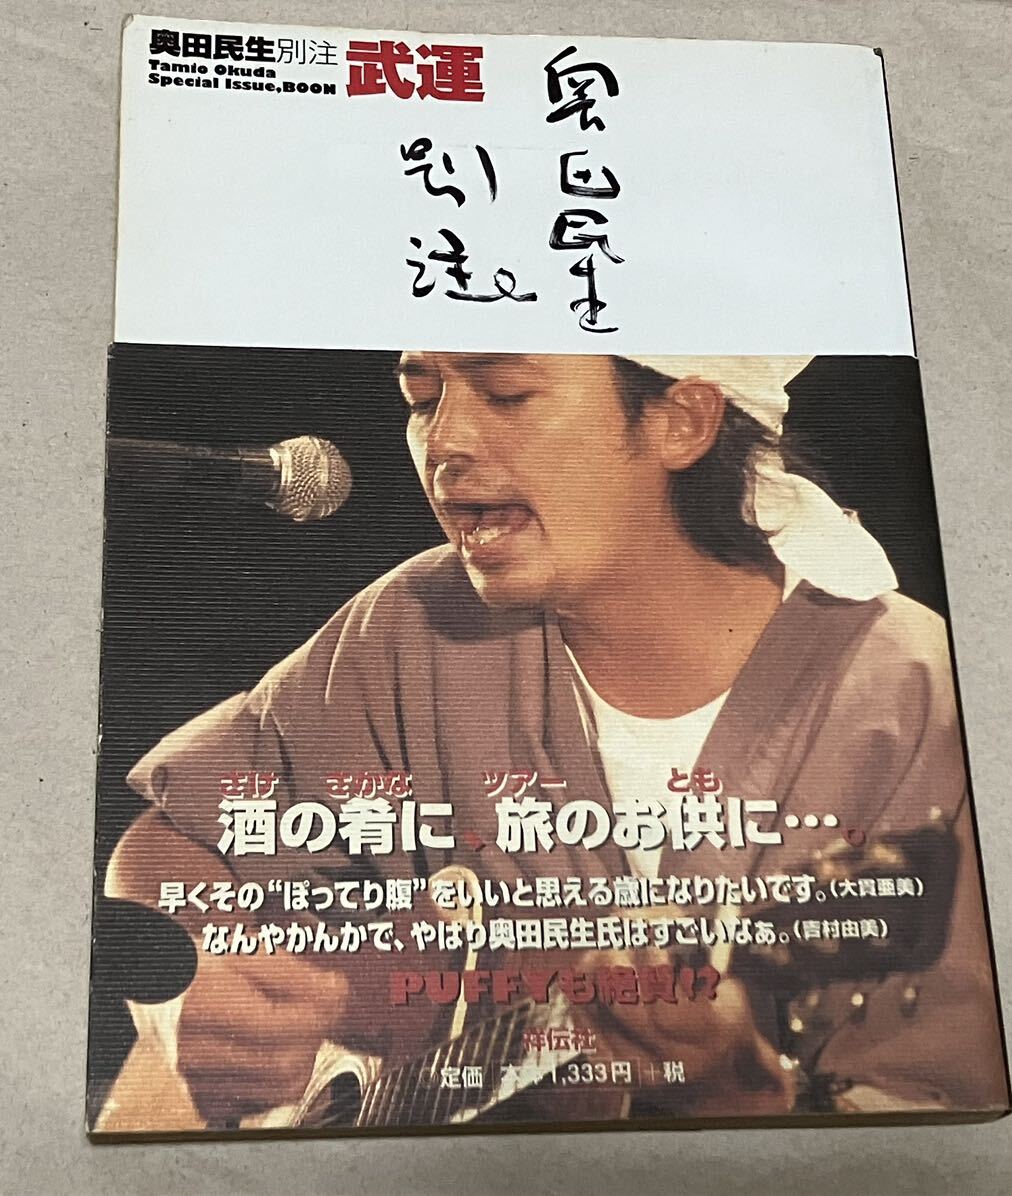 奥田民生別注
Tamio Okuda
Special Issue,BOON
武運
奥田民生
別注
さけ さかな ツアー とも
酒の肴に、旅のお供に…。
早くその“ぽってり腹”をいいと思える歳になりたいです。(大貫亜美)
なんやかんかで、やはり奥田民生氏はすごいなぁ。(吉村由美)
PUFFYも絶賛!?
祥伝社
定価 本体1,333円 +税